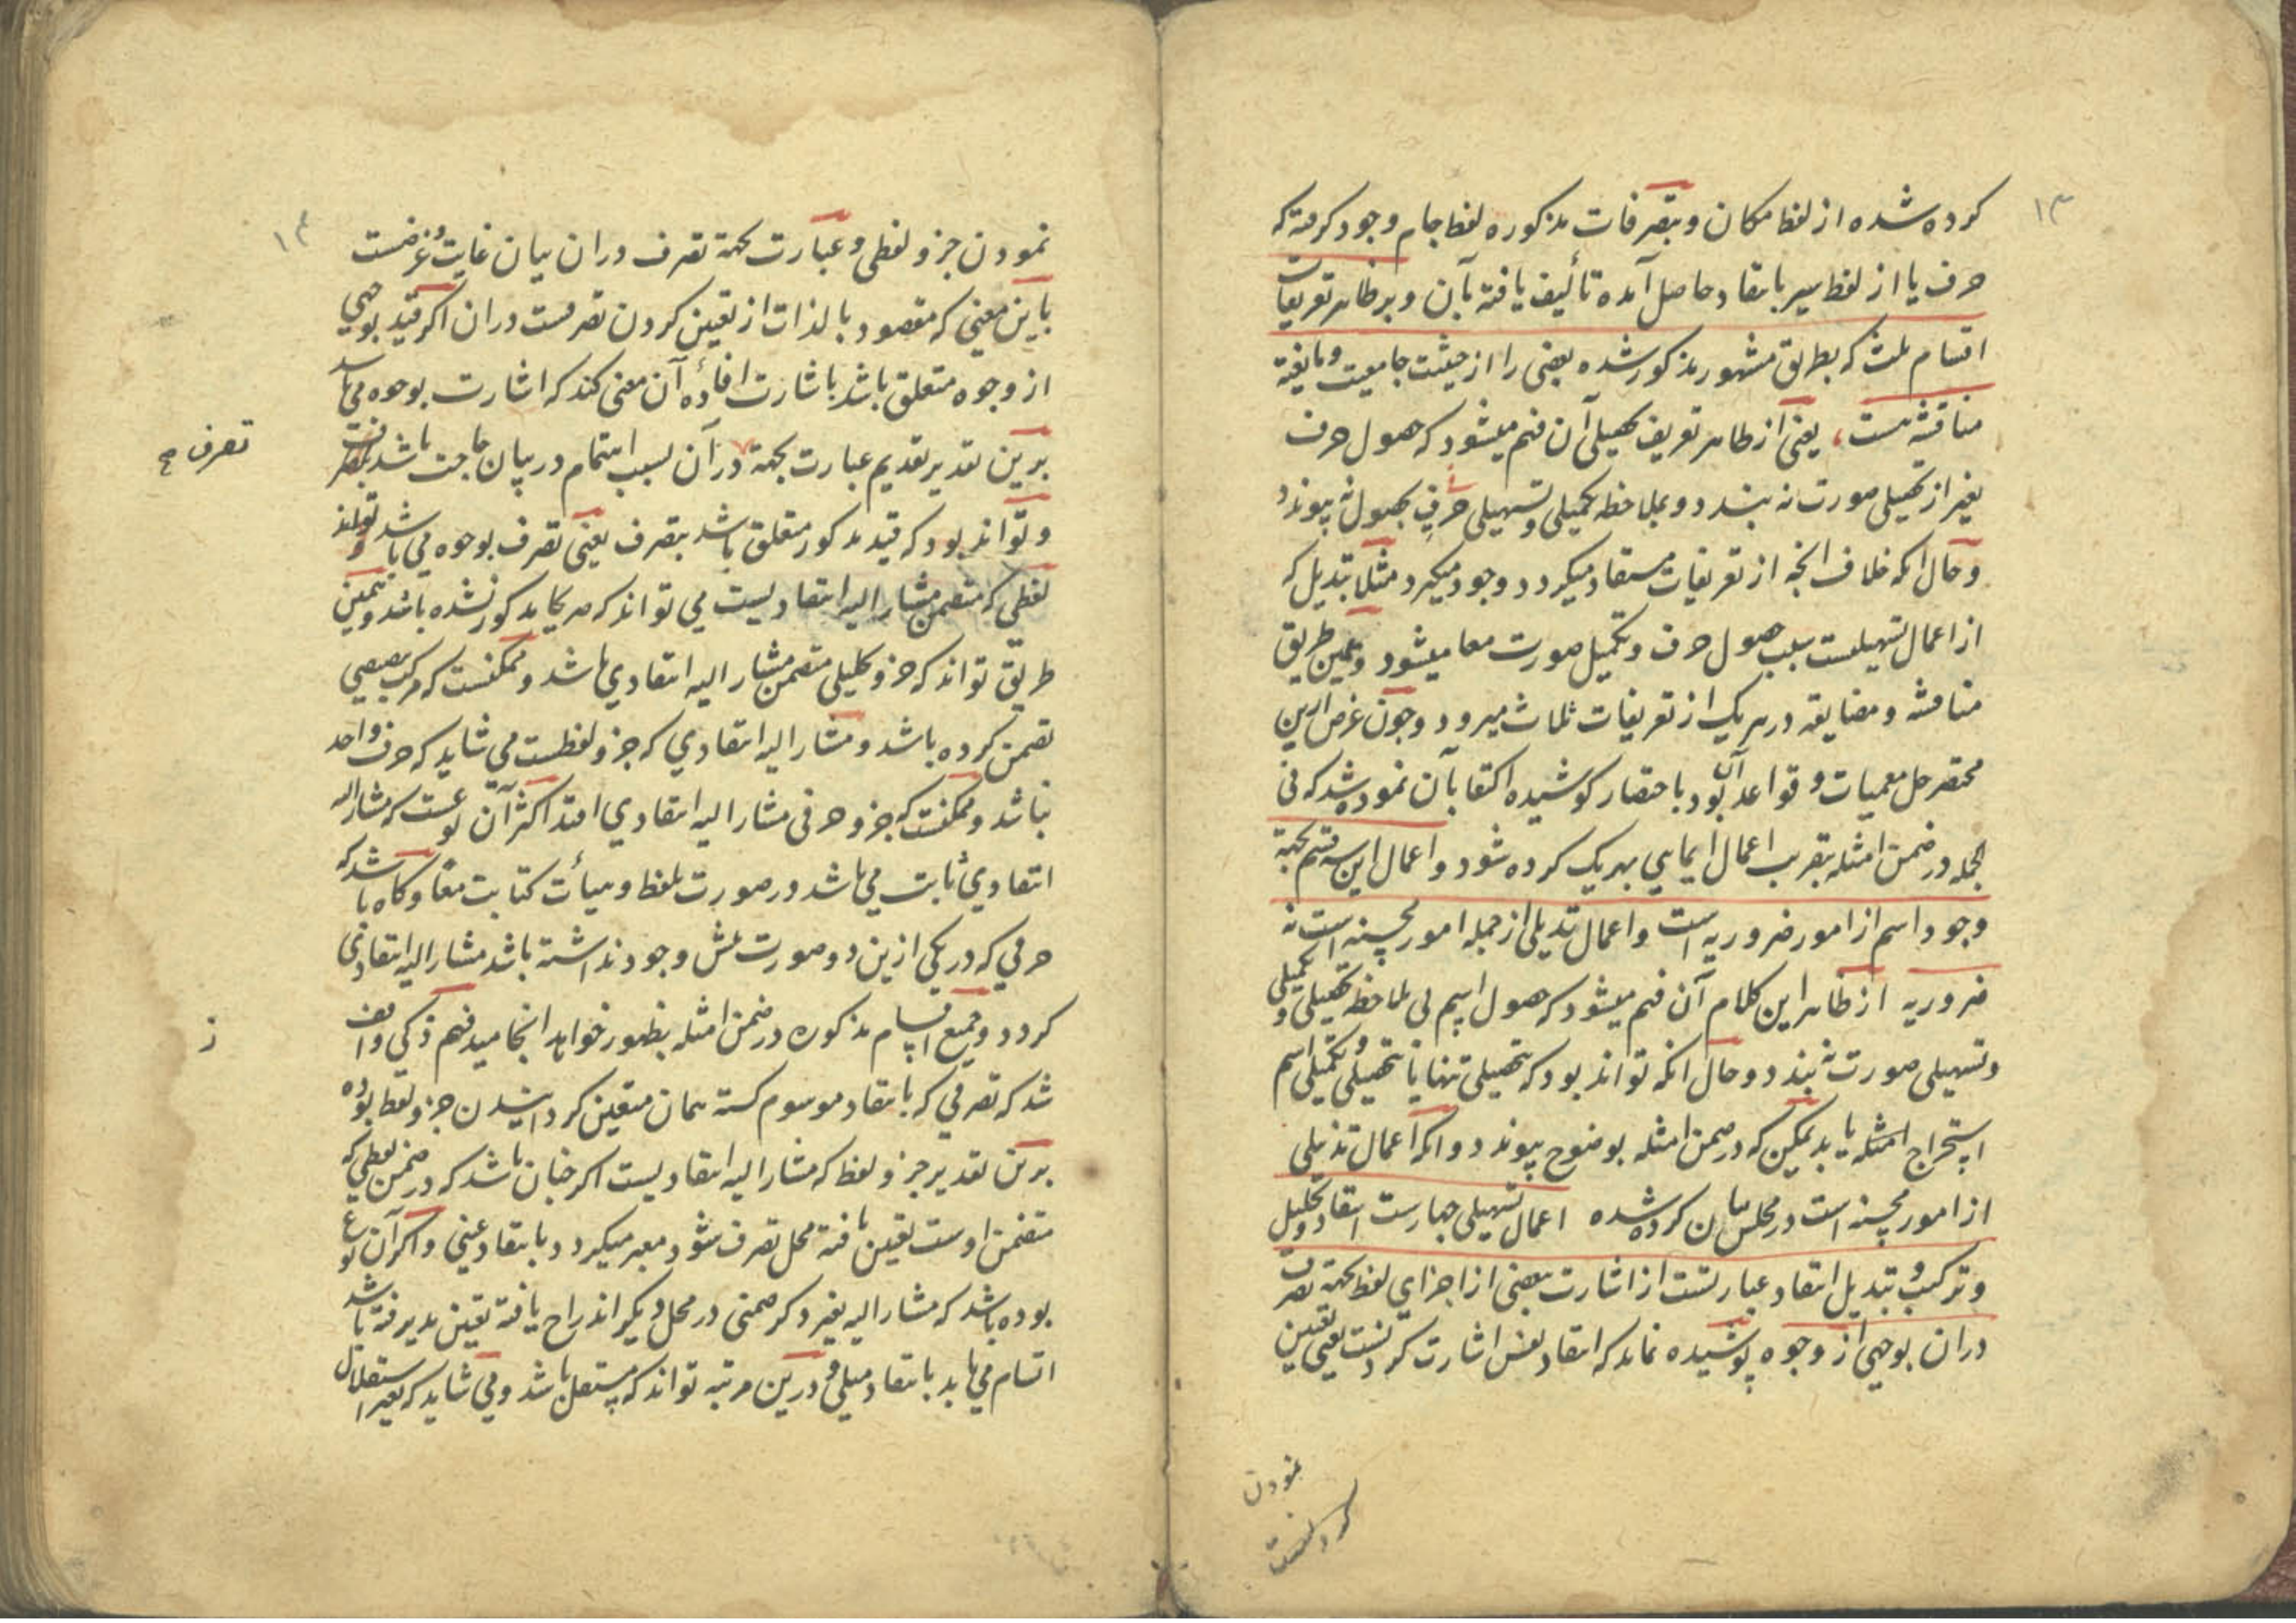 ۱۳
کرده شده از لفظ مکان و بتصرفات مذکوره لفظ جام وجود گرفته که
حرف یا از لفظ سیر بانتقاد حاصل آمده تألیف یافته بآن و بر ظاهر تعریفات
اقسام ثلث که بطریق مشهور مذکور شده بعضی را از حیثیت جامعیت و مانعیة
مناقشه هست یعنی از ظاهر تعریف تحصیلی آن فهم میشود که حصول حرف
بغیر از تحصیلی صورت نه بندد و بملاحظه تکمیلی و تسهیلی حرفی بحصول نه پیوندد
و حال آنکه خلاف آنچه از تعریفات مستفاد میکردد وجود میگیرد مثلا تبدیل که
از اعمال تسهیلیست سبب حصول حرف و تکمیل صورت معما میشود و بهمین طریق
مناقشه و مضایقه در هر یک از تعریفات ثلاث میرود و چون غرض ازین
مختصر حل معمیات و قواعد آن بود باختصار کوشیده اکتفا بآن نموده شد که فی
الجمله در ضمن امثله بتقریب اعمال ایمایی بهر یک کرده شود و اعمال این سه قسم بجهة
وجود اسم از امور ضروریه است و اعمال تذییلی از جمله امور محسنه است نه
ضروریه از ظاهر این کلام آن فهم میشود که حصول اسم بی ملاحظه تحصیلی و تکمیلی
و تسهیلی صورت نه بندد و حال آنکه تواند بود که بتحصیلی تنها یا بتحصیلی و تکمیلی اسم
استخراج امثله یابد لیکن که در ضمن امثله بوضوح پیوندد و آنکه اعمال تذییلی
از امور محسنه است در محلش بیان کرده شده اعمال تسهیلی چهارست انتقاد و تحلیل
و ترکیب و تبدیل انتقاد عبارتست از اشارت ببعضی از اجزای لفظ بجهة تصرف
دران بوجهی از وجوه پوشیده نماند که انتقاد نفس اشارت کردنست یعنی تعیین
نمودن
کردنست
نمودن جزو لفظی و عبارت بجهة تصرف دران بیان غایت و غرضست
باین معنی که مقصود بالذات از تعیین کردن تصرفست دران اگر قید بوجهی
از وجوه متعلق باشد باشارت افادهٔ آن معنی کند که اشارت بوجوه می باشد
برین تقدیر تقدیم عبارت بجهة در آن بسبب اهتمام در بیان حاجت باشد بتصرف
تصرف صح
و تواند بود که قید مذکور متعلق باشد بتصرف یعنی تصرف بوجوه می باشد و تواند
لفظی که متضمن مشار الیه انتقادیست می تواند که صریحا مذکور نشده باشد و بهمین
طریق تواند که جزو کلیلی متضمن مشار الیه انتقادی باشد و ممکنست که مرکب بعضی
تضمن کرده باشد و مشار الیه انتقادی که جزو لفظست می شاید که حرف واحد
نباشد و ممکنست که جزو حرفی مشار الیه انتقادی افتد اکثر آن نوعست که مشار الیه
انتقادی ثابت می باشد در صورت تلفظ و هیأت کتابت معا و گاه باشد که
حرفی که در یکی ازین دو صورتش وجود نداشته باشد مشار الیه انتقادی
گردد و جمیع اقسام مذکوره در ضمن امثله بظهور خواهد انجامید فهم ذکی واقف
شد که تصرفی که بانتقاد موسوم گشته همان متعین گردانیدن جزو لفظ بوده
برین تقدیر جزو لفظ که مشار الیه انتقادیست اگر چنان باشد که در ضمن لفظی که
متضمن اوست تعیین یافته محل تصرف شود معبر میگردد بانتقاد عینی و اگر آن نوع
بوده باشد که مشار الیه بغیر ذکر ضمنی در محل دیگر اندراج یافته تعیین پذیرفته باشد
اتسام می یابد بانتقاد مثلی و درین مرتبه تواند که مستقل باشد و می شاید که بغیر استقلال